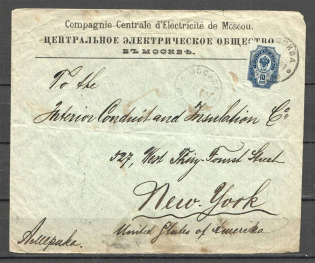 Compagnie Centrale d'Electricité de Moscou.
ЦЕНТРАЛЬНОЕ ЭЛЕКТРИЧЕСКОЕ ОБЩЕСТВО
ВЪ МОСКВѢ.
To the
Interior Conduit and Insulation Co
527, West Thiry-Fourst Street
New-York
United States of Amerika
Америка.